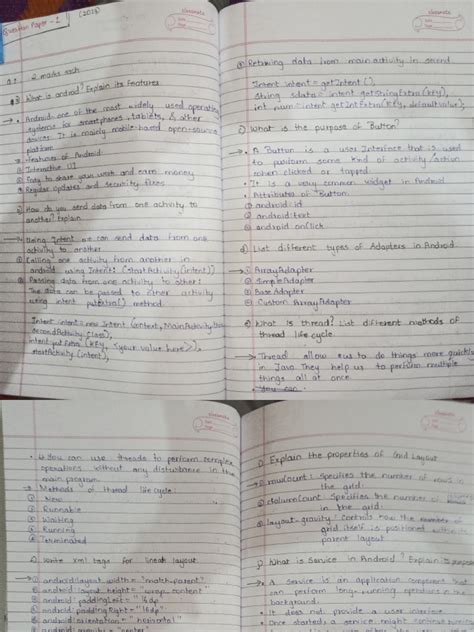 Question Paper - 1
(2018)
Q.1 2 marks each
a) What is android? Explain its features
→ • Android one of the most widely used operating
systems for smartphones, tablets, & other
devices. It is mainly mobile-based open-source
platform
→ Features of Android
① Interactive UI
② Easy to share your work and earn money
③ Regular updates and security fixes
b) How do you send data from one activity to
another? Explain
→ Using Intent we can send data from one
activity to another
① Calling one activity from another in
android using Intent (startActivity(intent))
② Passing data from one activity to other:
The data can be passed to other activity
using intent putExtra() method.
Intent intent = new Intent (context, MainActivity.this,
secondActivity.class),
intent.putExtra (KEY, <your value here>),
startActivity (intent),
③ Retriving data from main activity in second
Intent intent = getIntent(),
String sdata = intent.getStringExtra(KEY),
int num = intent.getIntExtra(KEY, defaultvalue),
c) What is the purpose of Button?
→ • A Button is a user Interface that is used
to perform some kind of activity/action
when clicked or tapped
• It is a very common widget in Android
• Attributes of Button
① android:id
② android:text
③ android:onclick
d) List different types of Adapters in Android
→ ① ArrayAdapter
② SimpleAdapter
③ Base Adapter
④ Custom ArrayAdapter
e) What is thread? List different methods of
thread life cycle
→ Thread allow us to do things more quickly
in Java They help us to perform multiple
things all at once
• You can
• You can use threads to perform complex
operations without any disturbance in the
main program
→ Methods of thread life cycle:
① New
② Runnable
③ Waiting
④ Running
⑤ Terminated
Write xml tags for linear layout
→ ① android:layout_width = "match-parent"
② android:layout_height = "wrap-content"
③ android:paddingLeft = "16dp"
④ android:paddingRight = "16dp"
⑤ android:orientation = "horizontal"
android:gravity = "center"
Explain the properties of Grid Layout
→ ① rowCount: Specifies the number of rows in
the grid
② columnCount Specifies the number of
in the grid.
③ layout-gravity: Controls how the number of
grid itself is positioned within
parent layout
What is Service in Android? Explain
→ • A service is an application component that
can perform long-running operations in the
background.
• It does not provide a user interface
• Once started a service might continue